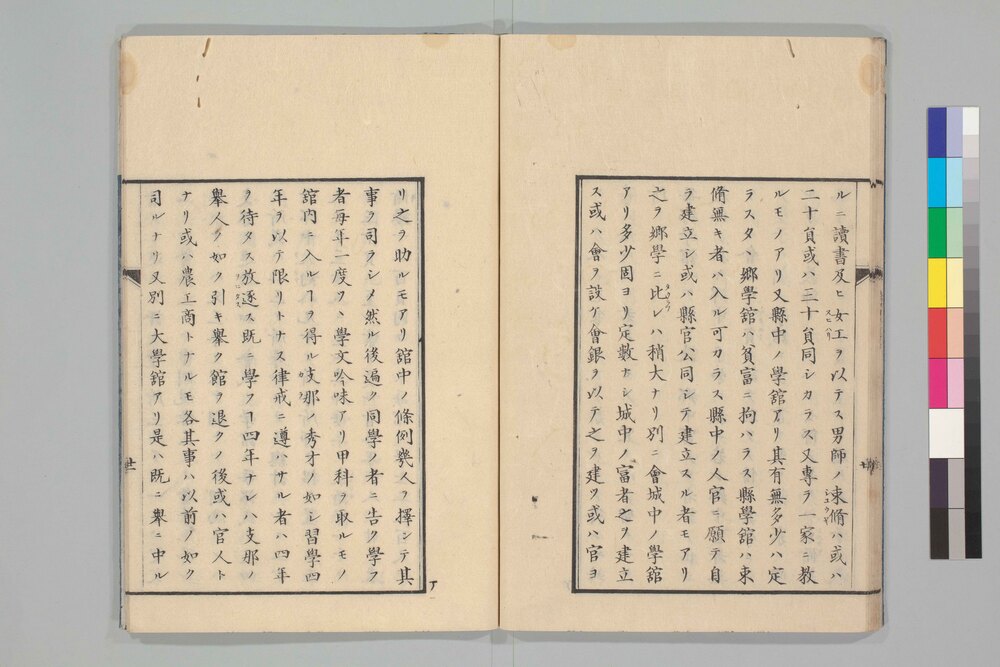 ルニ讀書及ヒ女工ヲ以テス男師ノ束脩ハ或ハ
二十負或ハ三十負同シカラス又専ラ一家ニ教
ルモノアリ又縣中ノ學舘アリ其有無多少ハ定
ラスタヽ鄉學舘ハ貧富ニ拘ハラス縣學舘ハ束
脩無キ者ハ入ル可カラス縣中ノ人官ニ願テ自
ラ建立シ或ハ縣官公同シテ建立スル者モアリ
之ヲ鄉學ニ比レハ稍大ナリ別ニ會城中ノ學舘
アリ多少固ヨリ定數ナシ城中ノ富者之ヲ建立
ス或ハ會ヲ設ケ會銀ヲ以テ之ヲ建ツ或ハ官ヨ
リ之ヲ助ルモアリ舘中ノ條例幾人ヲ擇シテ其
事ヲ司ラシメ然ル後遍ク同學ノ者ニ告ク學フ
者每年一度ツヽ學文吟味アリ甲科ヲ取ルモノ
舘內ニ入ルヿヲ得ル支那ノ秀才ノ如シ習學四
年ヲ以テ限リトナス律戒ニ遵ハサル者ハ四年
ヲ待タス放逐ス既ニ學フヿ四年ナレハ支那ノ
舉人ノ如ク引キ舉ク舘ヲ退クノ後或ハ官人ト
ナリ或ハ農工商トナルモ各其事ハ以前ノ如ク
司ルナリ又別ニ大學舘アリ是ハ既ニ舉ニ中ル